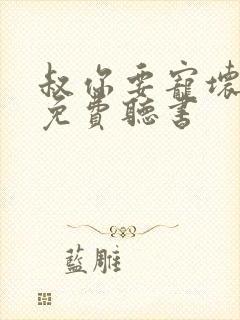 叔你要寵壞
免費聽書
藍雕